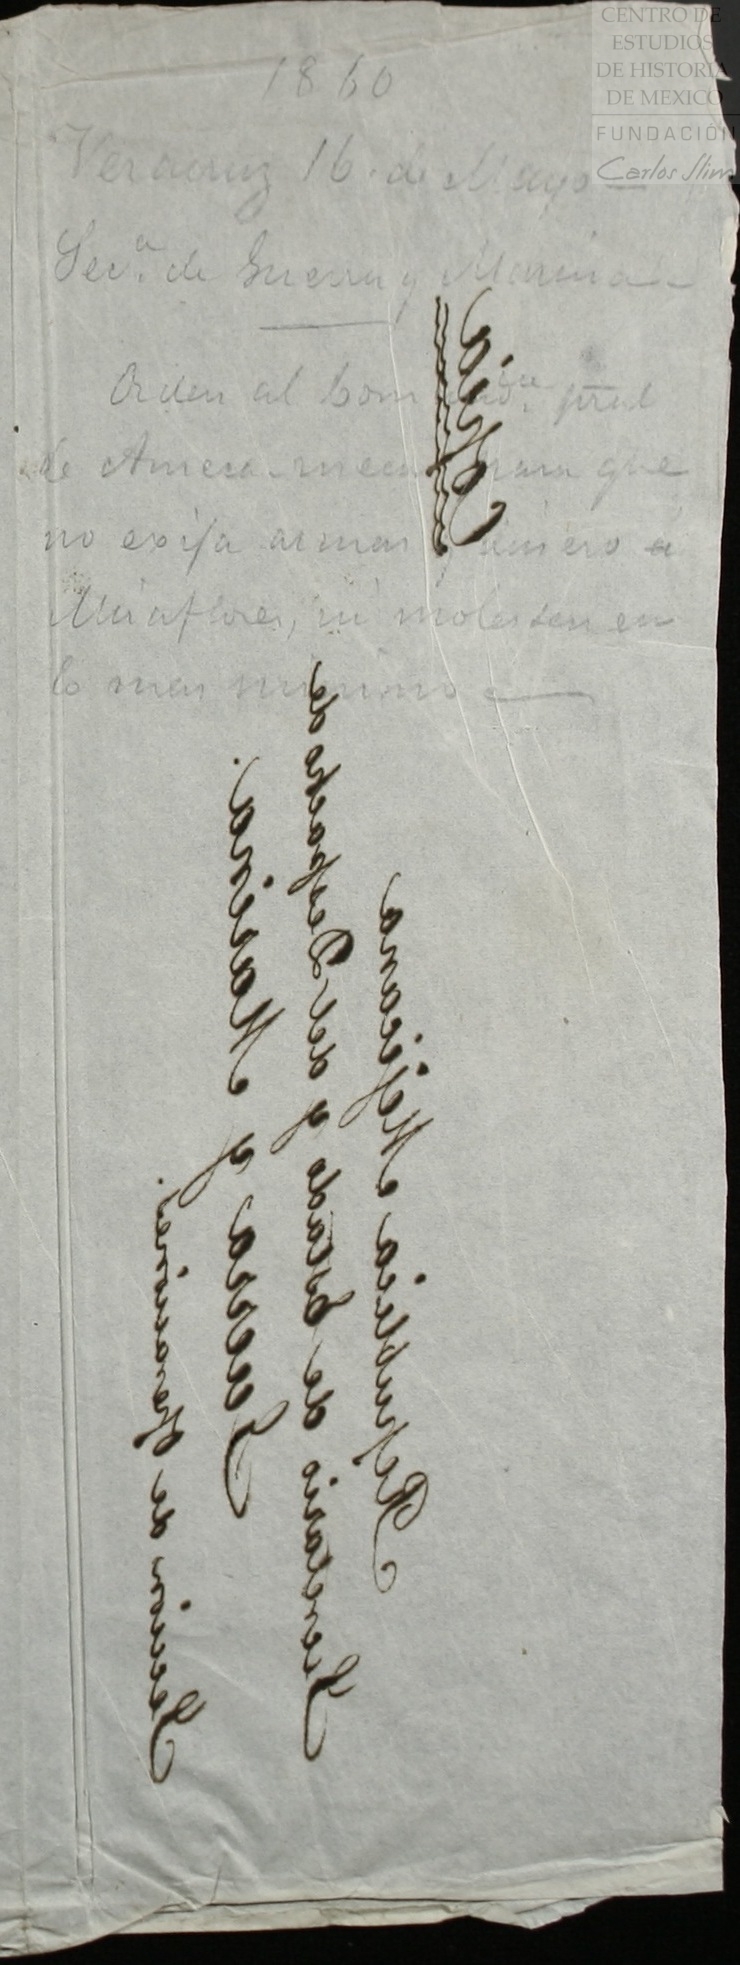 CENTRO DE
ESTUDIOS
DE HISTORIA
DE MEXICO
FUNDACIÓN
Carlos Slim
1860
Veracruz 16. de Mayo
Sec.a de Guerra y Marina
Orden al Com pral
de Ameca-meca para que
no exija armas y dinero á
Miraflores, ni molesten en
lo mas minimo
Copia
Republica Mejicana
Secretario de Estado y del Despacho de
Guerra y Marina.
Secion de Operaciones.